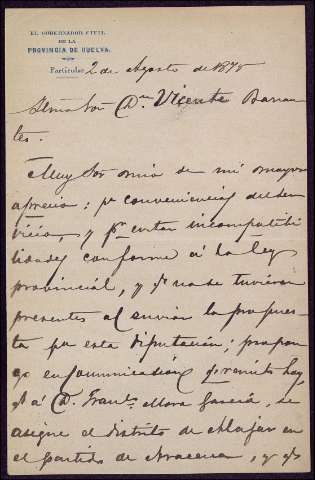 EL GOBERNADOR CIVIL
DE LA
PROVINCIA DE HUELVA.
Particular
2 de Agosto de 1878
Ilmo Sor Dn Vicente Barran
tes.
Muy Sor mio de mi mayor
aprecio: pr conveniencias del ser
vicio, y pr evitar incompatibi
lidades conforme á la ley
provincial, y qe no se tuvieron
presentes al enviar la propues
ta pa esta Diputacion; propon
go en comunicacion qe remito hoy
qe á D. Franco Mora Garcia, se
asigne el distrito de Alajar en
el partido de Aracena, y qe